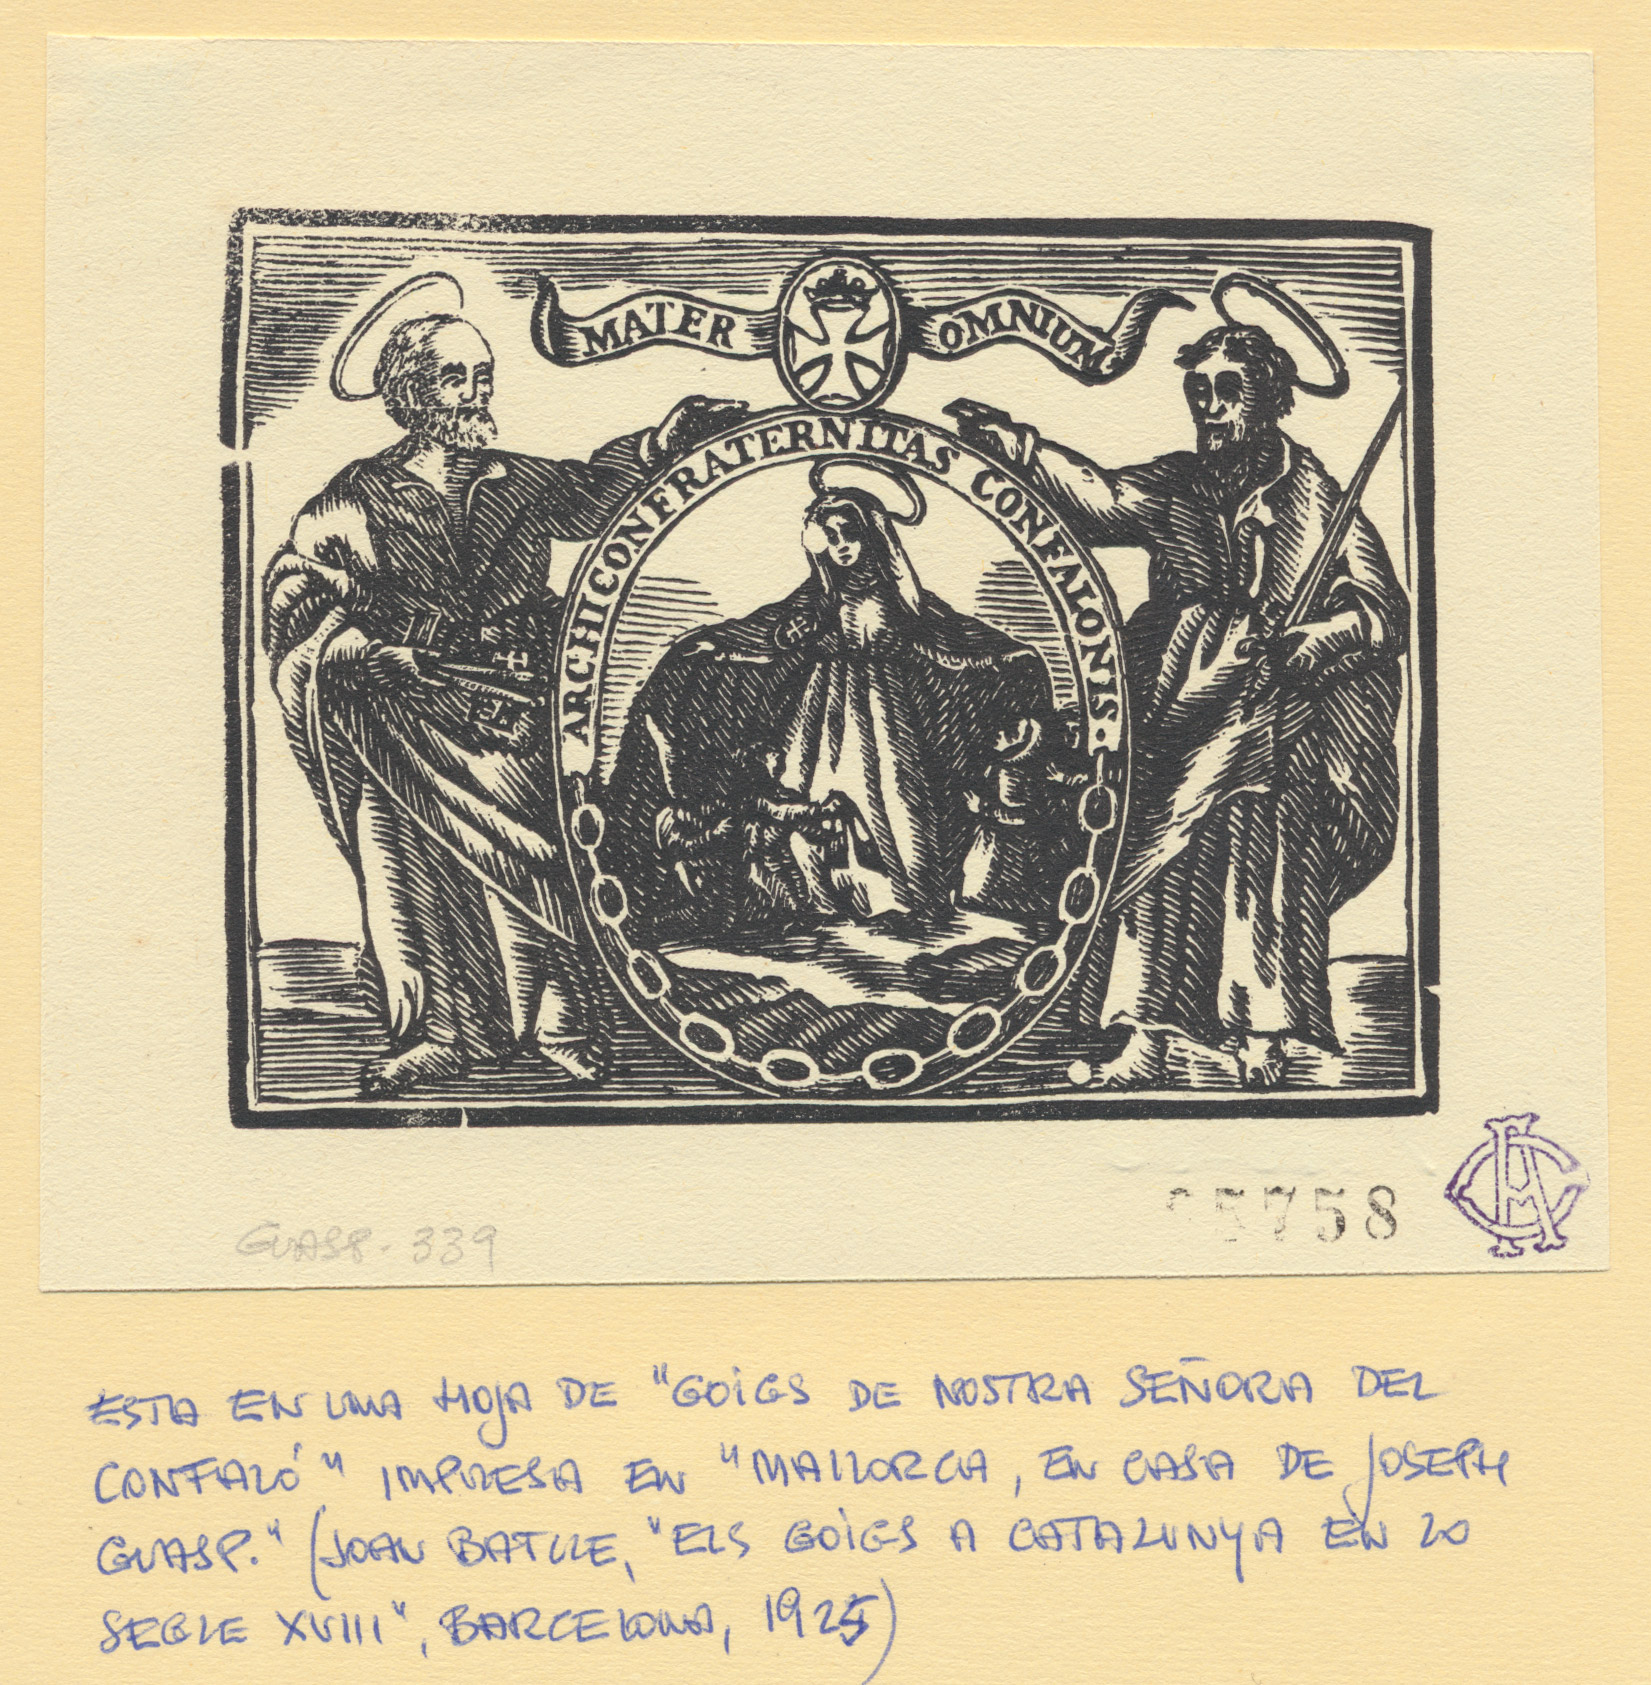 MATER OMNIUM.
ARCHICONFRATERNITAS CONFALONIS.
5758
GUASP. 339
ESTA EN UNA HOJA DE "GOIGS DE NOSTRA SEÑORA DEL
CONFALÓ" IMPRESA EN "MALLORCA, EN CASA DE JOSEPH
GUASP." (JOAN BATLLE, "ELS GOIGS A CATALUNYA EN LO
SEGLE XVIII", BARCELONA, 1925)